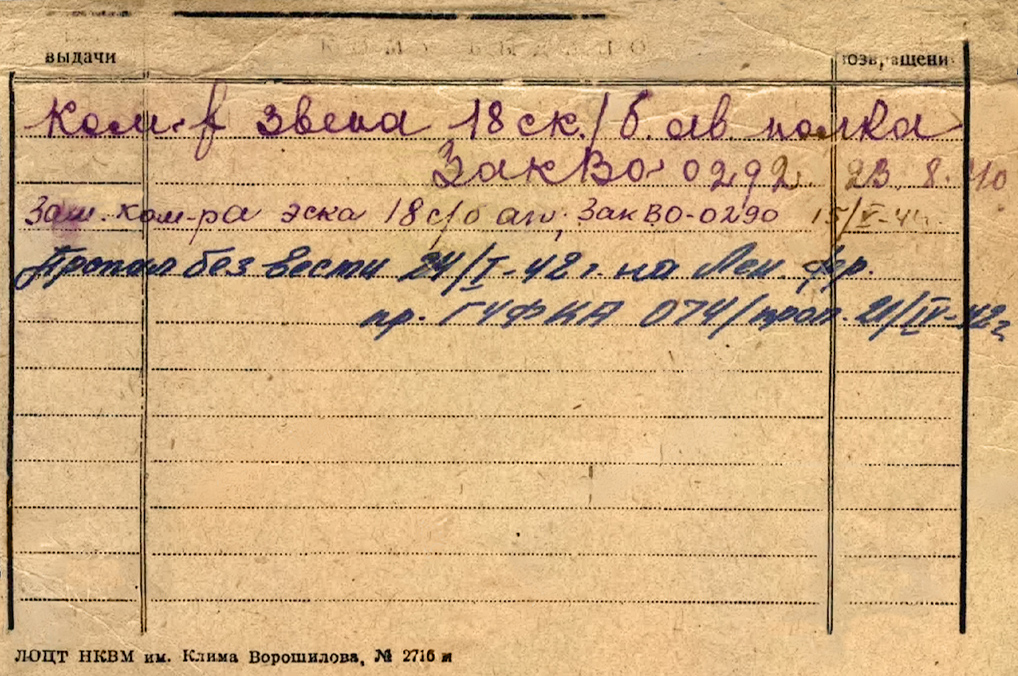 выдачи возвращени
Ком-р звена 18 ск./б. ав. полка
ЗакВО 0292 23 8.40
Зам. ком-ра эска 18 с/б ап, ЗакВО-0290 15/V-41.
Пропал без вести 24/I-42 г. на Лен. фр.
пр. ГУФКА 074/проп. 21/IV-42 г
ЛОЦТ НКВМ им. Клима Ворошилова, № 2716 и